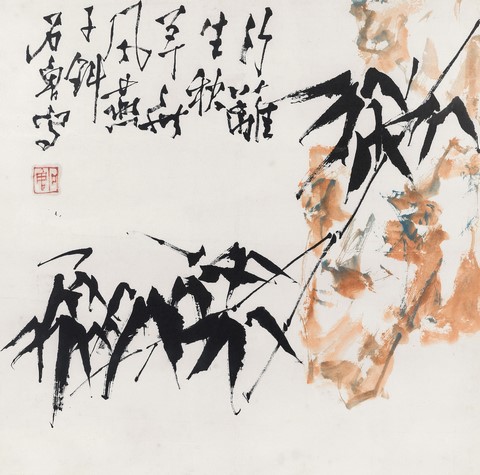 竹籬
生秋
草
风燕
子斜
石魯写